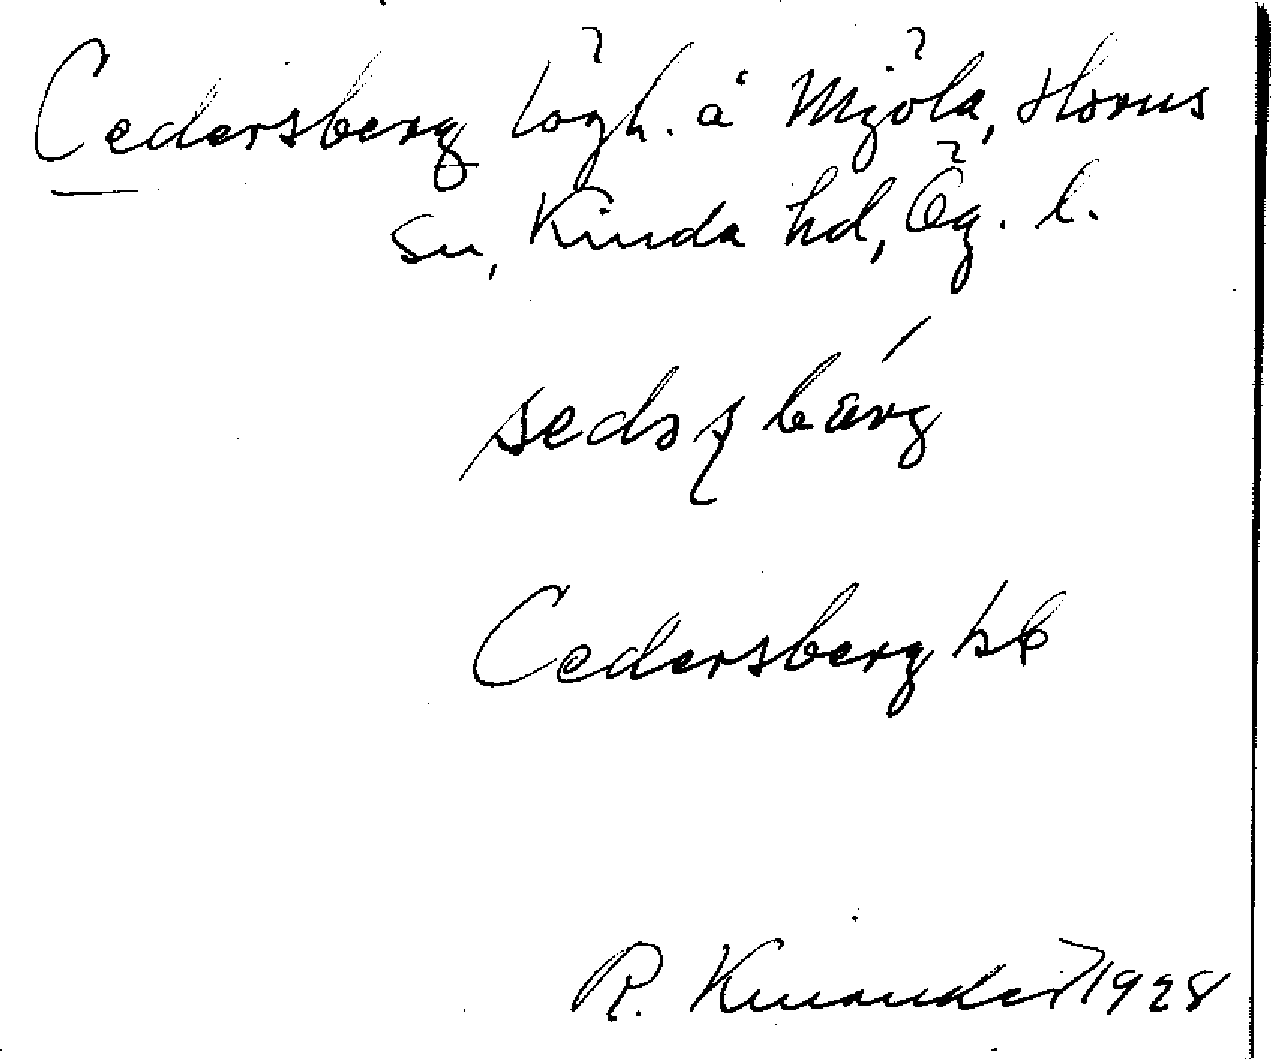 Cedersberg lögh. å Mjöla, Horns
sn, Kinda hd, Ög. l.
Cedersberg hb
R. Kinander 1928